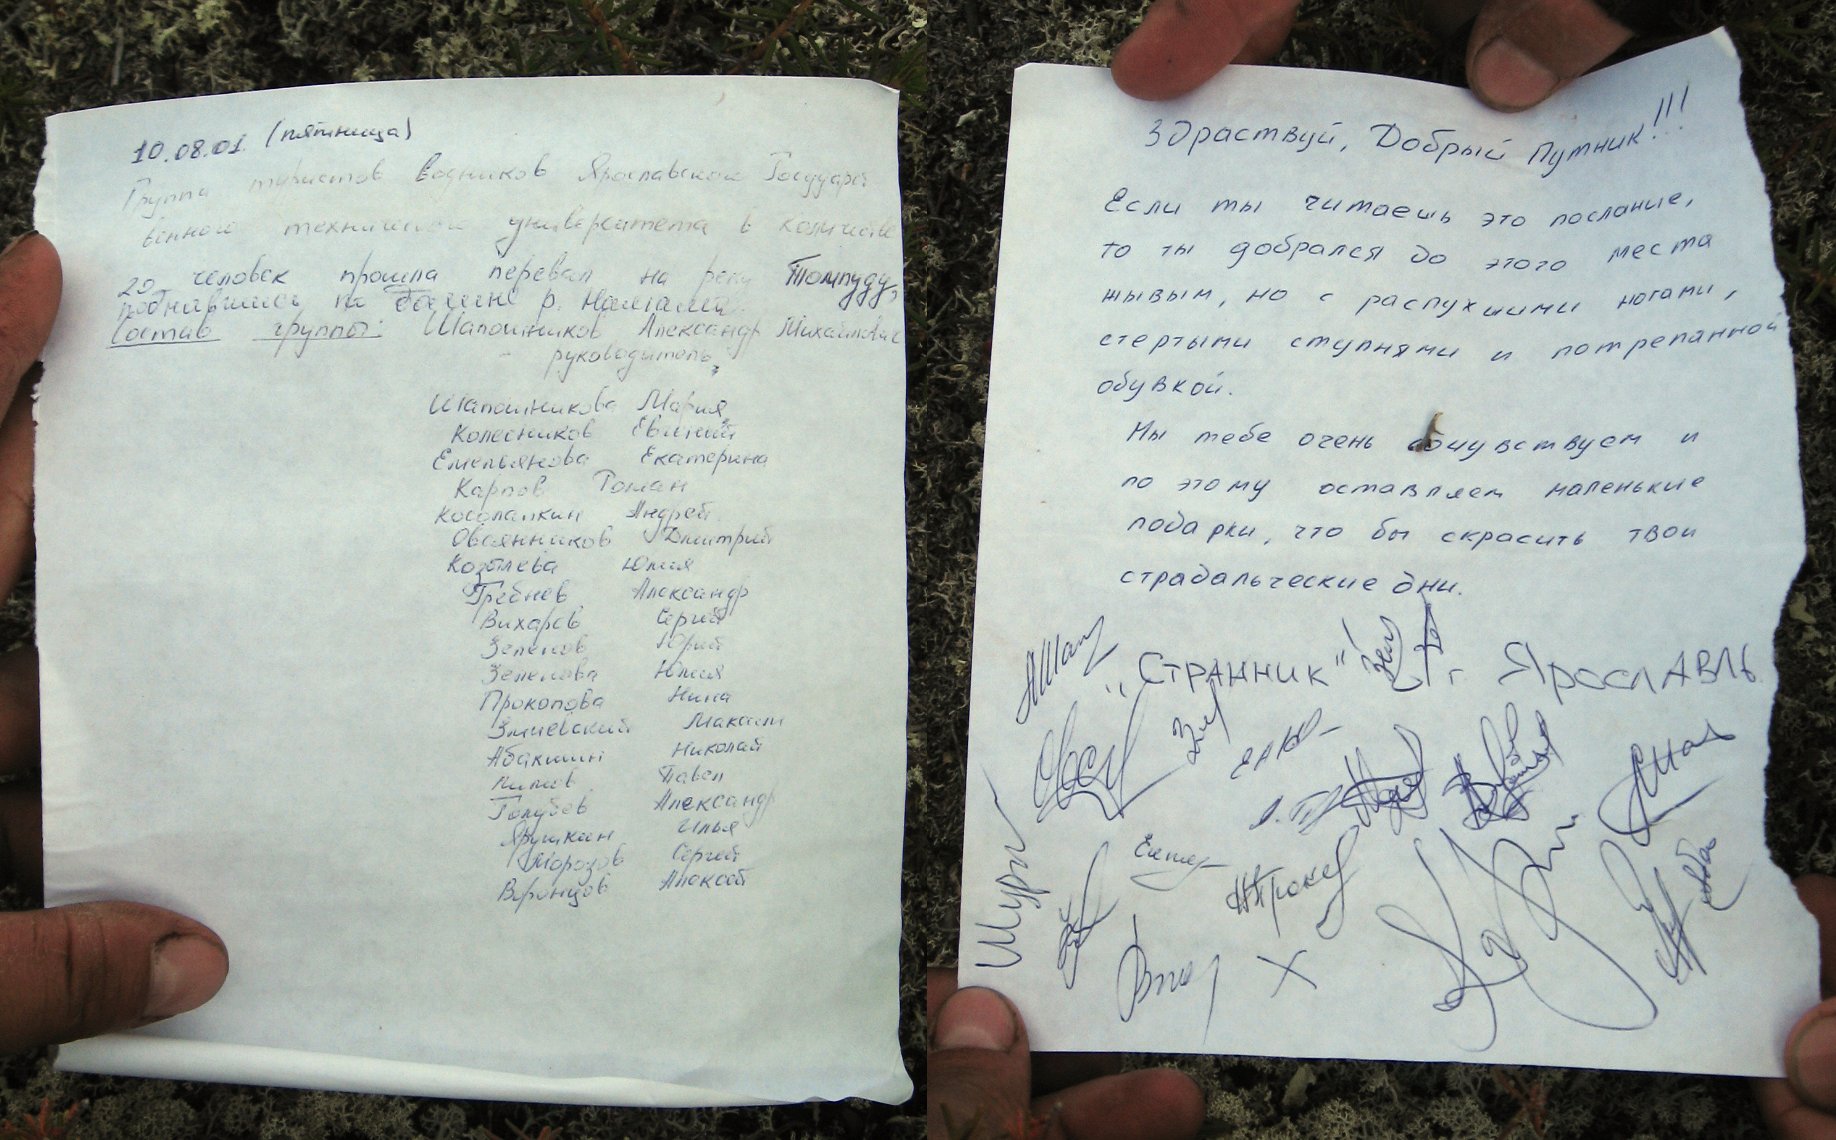 10.08.01 (пятница)
Группа туристов водников Ярославского Государст
венного технического университета в количестве
20 человек прошла перевал на реку Томпуду,
поднявшись по долине р.
Состав группы: Шапошников Александр Михайлович
- руководитель,
Шапошникова Мария
Колесников Евгений
Емельянова Екатерина
Карпов Роман
Косолапкин Андрей
Овсянников Дмитрий
Козылева Юлия
Гребнев Александр
Вихарев Сергей
Зеленов Юрий
Зеленова Юлия
Прокопова Нина
Змиевский Максим
Абакшин Николай
Павел
Голубев Александр
Ярушкин Илья
Морозов Сергей
Воронцов Алексей
Здраствуй, Добрый Путник!!!
Если ты читаешь это послание,
то ты добрался до этого места
жывым, но с распухшими ногами,
стертыми ступнями и потрепанной
обувкой.
Мы тебе очень сочувствуем и
по этому оставляем маленькие
подарки, что бы скрасить твои
страдальческие дни.
"Странник" г Ярославль